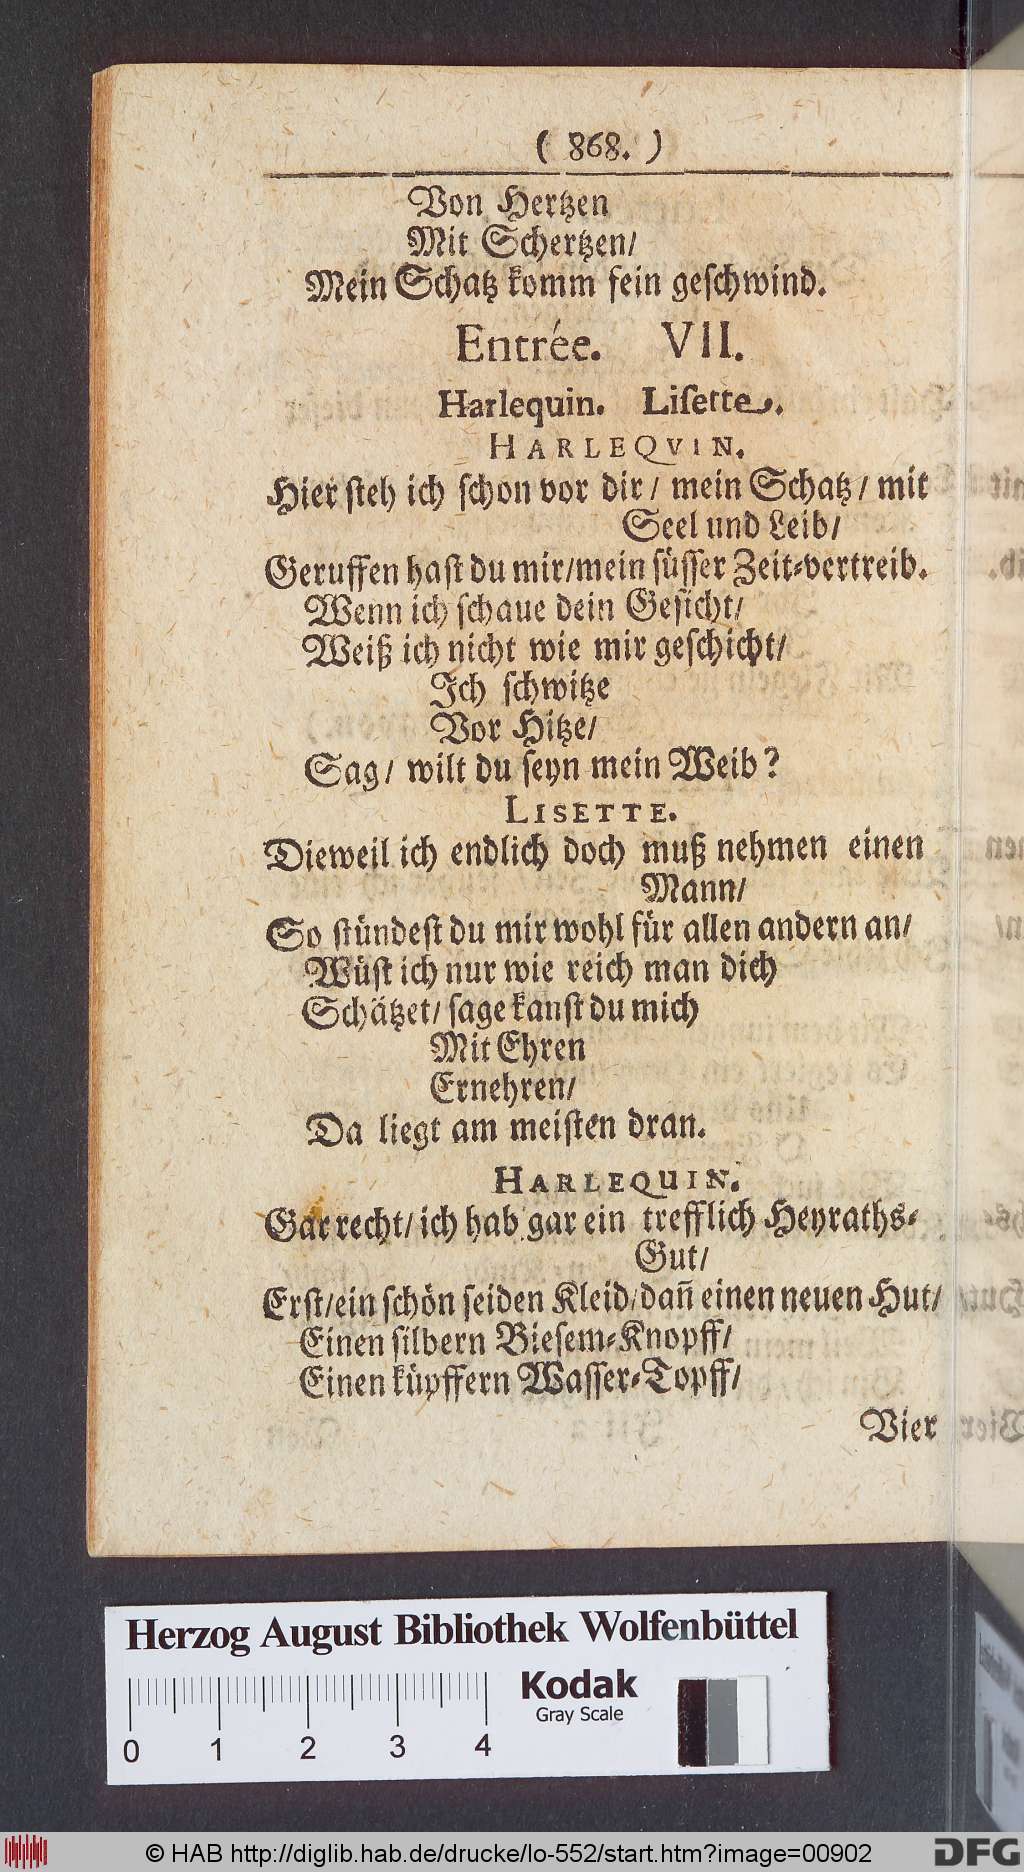 ( 868. )
Von Hertzen
Mit Schertzen/
Mein Schatz komm fein geschwind.
Entrée. VII.
Harlequin. Lisette.
HARLEQVIN.
Hier steh ich schon vor dir/ mein Schatz/ mit
Seel und Leib/
Geruffen hast du mir/mein süsser Zeit-vertreib.
Wenn ich schaue dein Gesicht/
Weiß ich nicht wie mir geschicht/
Ich schwitze
Vor Hitze/
Sag/ wilt du seyn mein Weib?
LISETTE.
Dieweil ich endlich doch muß nehmen einen
Mann/
So stündest du mir wohl für allen andern an/
Wüst ich nur wie reich man dich
Schätzet/ sage kanst du mich
Mit Ehren
Ernehren/
Da liegt am meisten dran.
HARLEQUIN.
Gar recht/ ich hab gar ein trefflich Heyraths-
Gut/
Erst/ein schön seiden Kleid/dañ einen neuen Hut/
Einen silbern Biesem-Knopff/
Einen küpffern Wasser-Topff/
Vier
Herzog August Bibliothek Wolfenbüttel
Kodak
Gray Scale
0 1 2 3 4
© HAB http://diglib.hab.de/drucke/lo-552/start.htm?image=00902
DFG